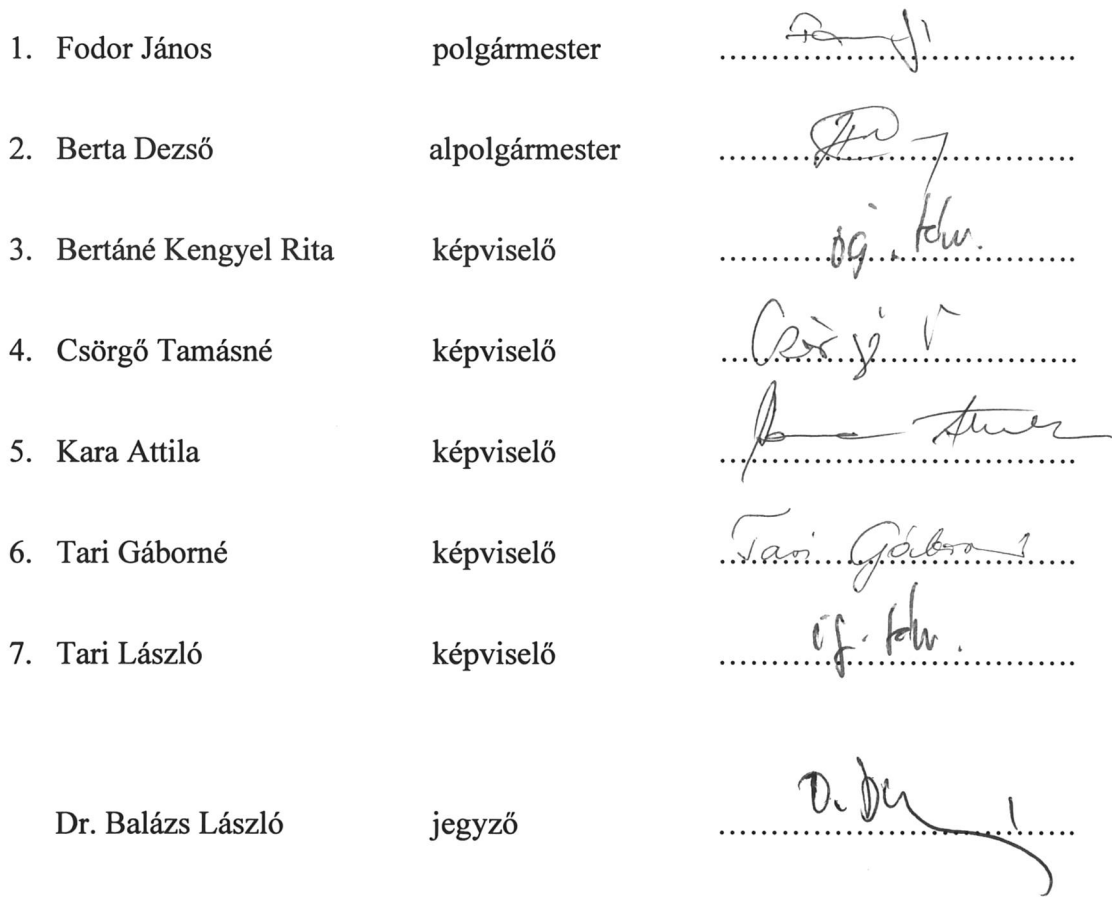 1. Fodor János polgármester ..............................
2. Berta Dezső alpolgármester ..............................
3. Bertáné Kengyel Rita képviselő ..............................
4. Csörgő Tamásné képviselő ..............................
5. Kara Attila képviselő ..............................
6. Tari Gáborné képviselő Tari Gáborné
7. Tari László képviselő ..............................
Dr. Balázs László jegyző ..............................